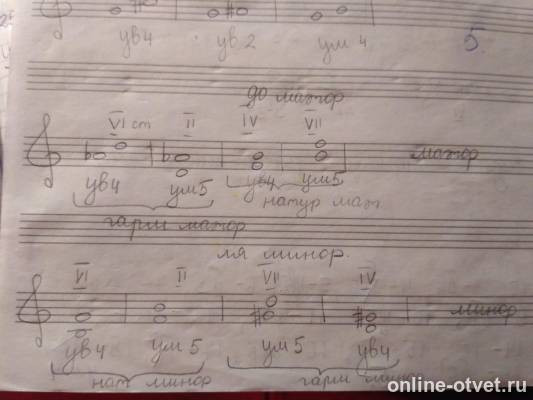 ув4 ув2 ум4 5.
до мажор
VI ст II IV VII
мажор
ув4 ум5 ув4 ум5
гарм мажор натур маж
ля минор.
VI II VII IV
минор
ув4 ум5 ум5 ув4
нат минор гарм минор
online-otvet.ru